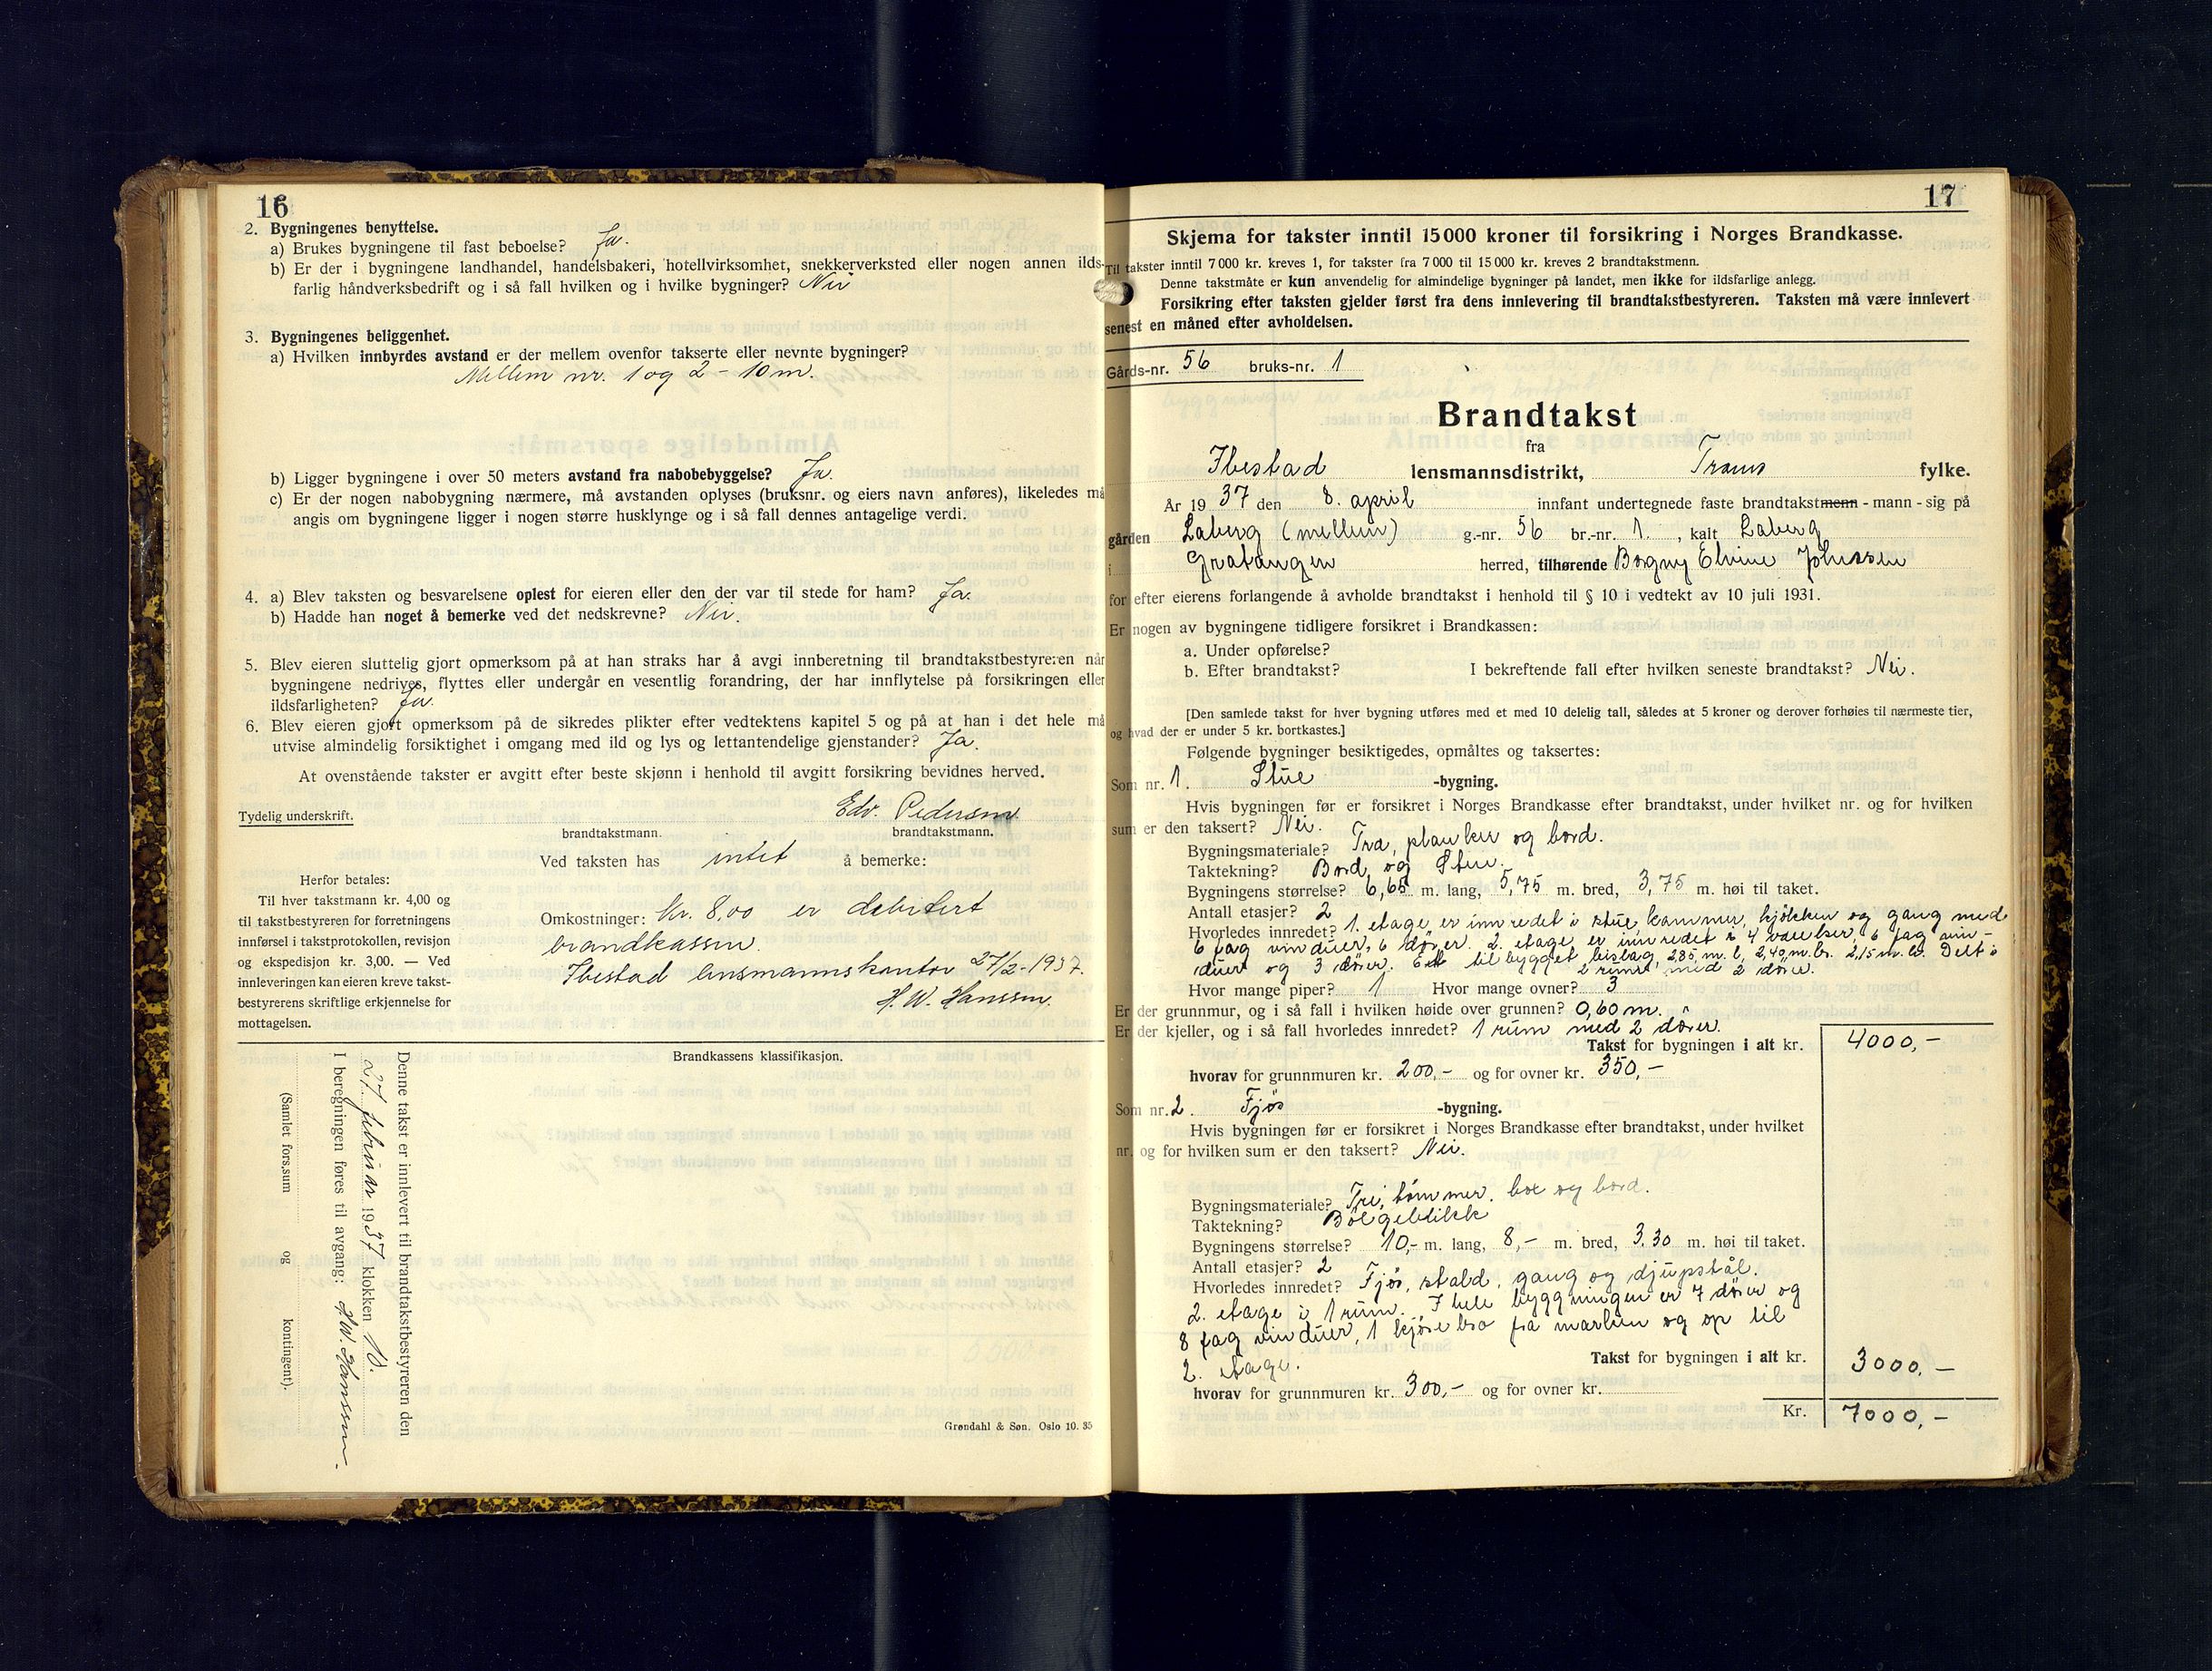 16
2. Bygningenes benyttelse.
a) Brukes bygningene til fast beboelse? Ja.
b) Er der i bygningene landhandel, handelsbakeri, hotellvirksomhet, snekkerverksted eller nogen annen ilds-
farlig håndverksbedrift og i så fall hvilken og i hvilke bygninger? Nei
3. Bygningenes beliggenhet.
a) Hvilken innbyrdes avstand er der mellem ovenfor takserte eller nevnte bygninger?
Mellem nr. 1 og 2 - 10 m.
b) Ligger bygningene i over 50 meters avstand fra nabobebyggelse? Ja.
c) Er der nogen nabobygning nærmere, må avstanden oplyses (bruksnr. og eiers navn anføres), likeledes må
angis om bygningene ligger i nogen større husklynge og i så fall dennes antagelige verdi.
4. a) Blev taksten og besvarelsene oplest for eieren eller den der var til stede for ham? Ja.
b) Hadde han noget å bemerke ved det nedskrevne? Nei.
5. Blev eieren sluttelig gjort opmerksom på at han straks har å avgi innberetning til brandtakstbestyreren når
bygningene nedrives, flyttes eller undergår en vesentlig forandring, der har innflytelse på forsikringen eller
ildsfarligheten? Ja.
6. Blev eieren gjort opmerksom på de sikredes plikter efter vedtektens kapitel 5 og på at han i det hele må
utvise almindelig forsiktighet i omgang med ild og lys og lettantendelige gjenstander? Ja.
At ovenstående takster er avgitt efter beste skjønn i henhold til avgitt forsikring bevidnes herved.
Tydelig underskrift. Edv. Pedersen
brandtakstmann. brandtakstmann.
Ved taksten has intet å bemerke:
Herfor betales:
Til hver takstmann kr. 4,00 og
til takstbestyreren for forretningens
innførsel i takstprotokollen, revisjon
og ekspedisjon kr. 3,00. — Ved
innleveringen kan eieren kreve takst-
bestyrerens skriftlige erkjennelse for
mottagelsen.
Omkostninger: kr. 8,00 er debitert
brandkassen.
Ibestad lensmannskontor 27/2-1937.
H. W. Hanssen.
Brandkassens klassifikasjon.
Denne takst er innlevert til brandtakstbestyreren den
27. februar 1937 klokken 10.
I beregningen føres til avgang: H.W. Hanssen.
(Samlet fors.sum og kontingent).
Grøndahl & Søn. Oslo 10. 35
17
Skjema for takster inntil 15000 kroner til forsikring i Norges Brandkasse.
Til takster inntil 7 000 kr. kreves 1, for takster fra 7 000 til 15 000 kr. kreves 2 brandtakstmenn.
Denne takstmåte er kun anvendelig for almindelige bygninger på landet, men ikke for ildsfarlige anlegg.
Forsikring efter taksten gjelder først fra dens innlevering til brandtakstbestyreren. Taksten må være innlevert
senest en måned efter avholdelsen.
Gårds-nr. 56 bruks-nr. 1
Brandtakst
fra
Ibestad lensmannsdistrikt, Troms fylke.
År 1937 den 8. april innfant undertegnede faste brandtakstmenn - mann - sig på
gården Laberg (mellem) g.-nr. 56 br.-nr. 1., kalt Laberg
i Gratangen herred, tilhørende Borgny Elvine Johnssen
for efter eierens forlangende å avholde brandtakst i henhold til § 10 i vedtekt av 10 juli 1931.
Er nogen av bygningene tidligere forsikret i Brandkassen:
a. Under opførelse?
b. Efter brandtakst? I bekreftende fall efter hvilken seneste brandtakst? Nei.
[Den samlede takst for hver bygning utføres med et med 10 delelig tall, således at 5 kroner og derover forhøies til nærmeste tier,
og hvad der er under 5 kr. bortkastes.]
Følgende bygninger besiktigedes, opmåltes og taksertes:
Som nr. 1. Stue -bygning.
Hvis bygningen før er forsikret i Norges Brandkasse efter brandtakst, under hvilket nr. og for hvilken
sum er den taksert? Nei.
Bygningsmateriale? Træ, planker og bord.
Taktekning? Bord og Sten.
Bygningens størrelse? 6,65 m. lang, 5,75 m. bred, 3,75 m. høi til taket.
Antall etasjer? 2
Hvorledes innredet? 1. etage er innredet i stue, kammer, kjøkken og gang med
6 fag vinduer, 6 dører. 2. etage er innredet i 4 værelser, 6 fag vin-
duer og 3 dører. Et tilbygget bislag, 2,85 m. l, 2,40 m. br. 2,15 m. h. Delt i
2 rum med 2 dører.
Hvor mange piper? 1 Hvor mange ovner? 3
Er der grunnmur, og i så fall i hvilken høide over grunnen? 0,60 m.
Er der kjeller, og i så fall hvorledes innredet? 1 rum med 2 dører.
Takst for bygningen i alt kr. 4000,-
hvorav for grunnmuren kr. 200,- og for ovner kr. 350,-
Som nr. 2. Fjøs -bygning.
Hvis bygningen før er forsikret i Norges Brandkasse efter brandtakst, under hvilket
nr. og for hvilken sum er den taksert? Nei.
Bygningsmateriale? Tre, tømmer, og bord.
Taktekning? Bølgeblikk
Bygningens størrelse? 10,- m. lang, 8,- m. bred, 3.30 m. høi til taket.
Antall etasjer? 2
Hvorledes innredet? Fjøs, stald, gang og djupstål.
2. etage i 1 rum. I hele byggningen er 7 dører og
8 fag vinduer, 1 kjørebro fra marken og op til
2. etage.
Takst for bygningen i alt kr. 3000,-
hvorav for grunnmuren kr. 300,- og for ovner kr.
Kr. 7000,-